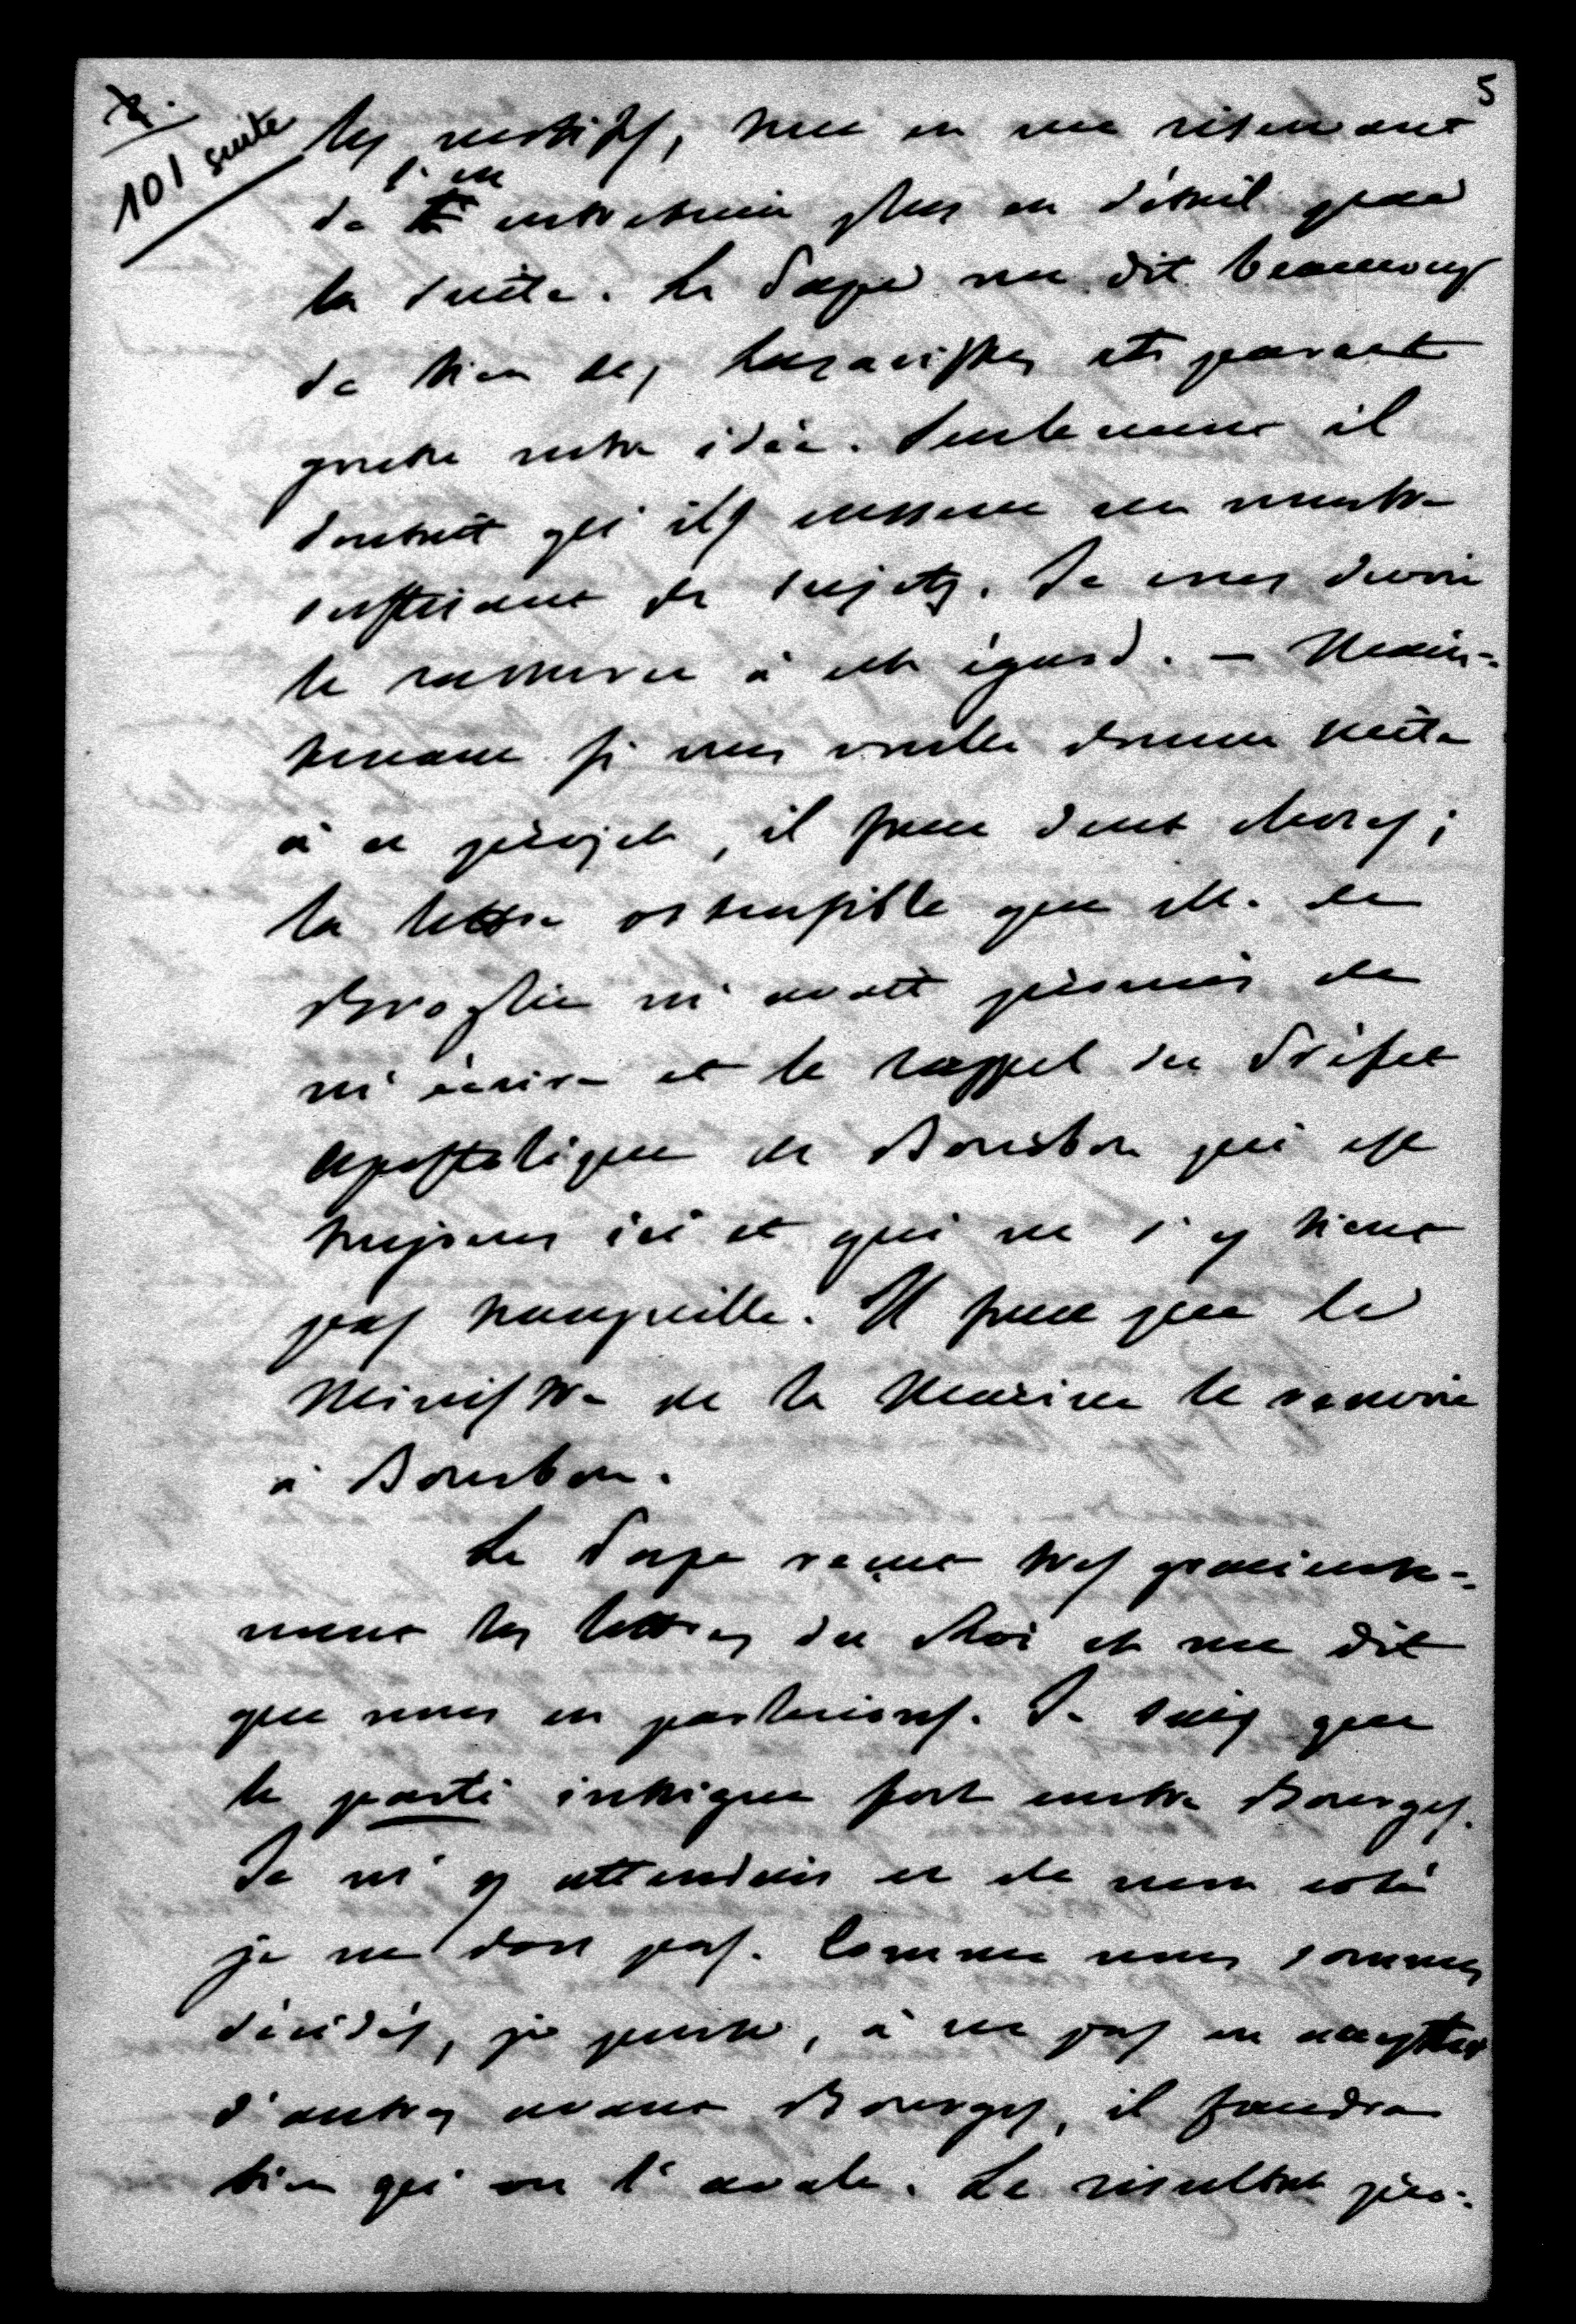 5
101 suite
les motifs, tout en me réservant
de l'en entretenir plus en détail par
la suite. Le Pape me dit beaucoup
de bien des Lazaristes et parait
goûter notre idée. Seulement il
doutait qu'ils eussent un nombre
suffisant de sujets. Je crus devoir
le rassurer à cet égard. — Main-
tenant si vous voulez donner suite
à ce projet, il faut deux choses ;
la lettre ostensible que M. de
Broglie m'avait promis de
m'écrire et le rappel du Préfet
apostolique de Bourbon qui est
toujours ici et qui ne s'y tient
pas tranquille. Il faut que le
Ministre de la Marine le renvoie
à Bourbon.
Le Pape reçut très gracieuse-
ment les lettres du Roi et me dit
que nous en parlerions. Je sais que
le parti intrigue fort contre Bourges.
Je m'y attendais et de mon côté
je ne dors pas. Comme nous sommes
décidés, je pense, à ne pas en accepter
d'autres avant Bourges, il faudra
bien qu'on l'avale. Le résultat pro-